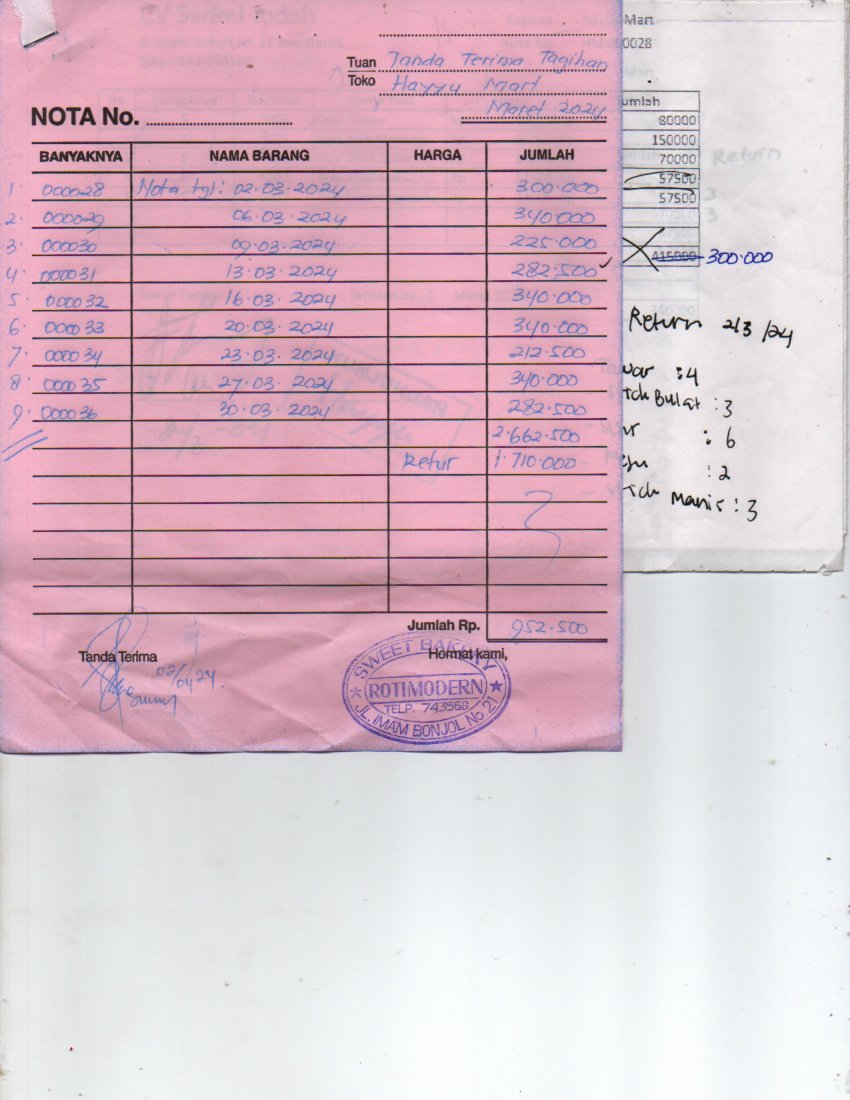 Tuan Tanda Terima Tagihan
Toko Hayyu Mart
Maret 2024
NOTA No.
BANYAKNYA NAMA BARANG HARGA JUMLAH
1. 000028 Nota tgl: 02.03.2024 300.000
2. 000029 06.03.2024 340.000
3. 000030 09.03.2024 225.000
4. 000031 13.03.2024 282.500
5. 000032 16.03.2024 340.000
6. 000033 20.03.2024 340.000
7. 000034 23.03.2024 212.500
8. 000035 27.03.2024 340.000
9. 000036 30.03.2024 282.500
2.662.500
Retur 1.710.000
Jumlah Rp. 952.500
Tanda Terima
Hormat kami,
02/04 24.
SWEET BAKERY
ROTI MODERN
TELP. 743568
JL. IMAM BONJOL No. 21
Mart
0028
umlah
80000
150000
70000
Return
57500
57500
415000 300.000
Return 2/3/24
: 4
Bulat : 3
: 6
: 2
Manis : 3